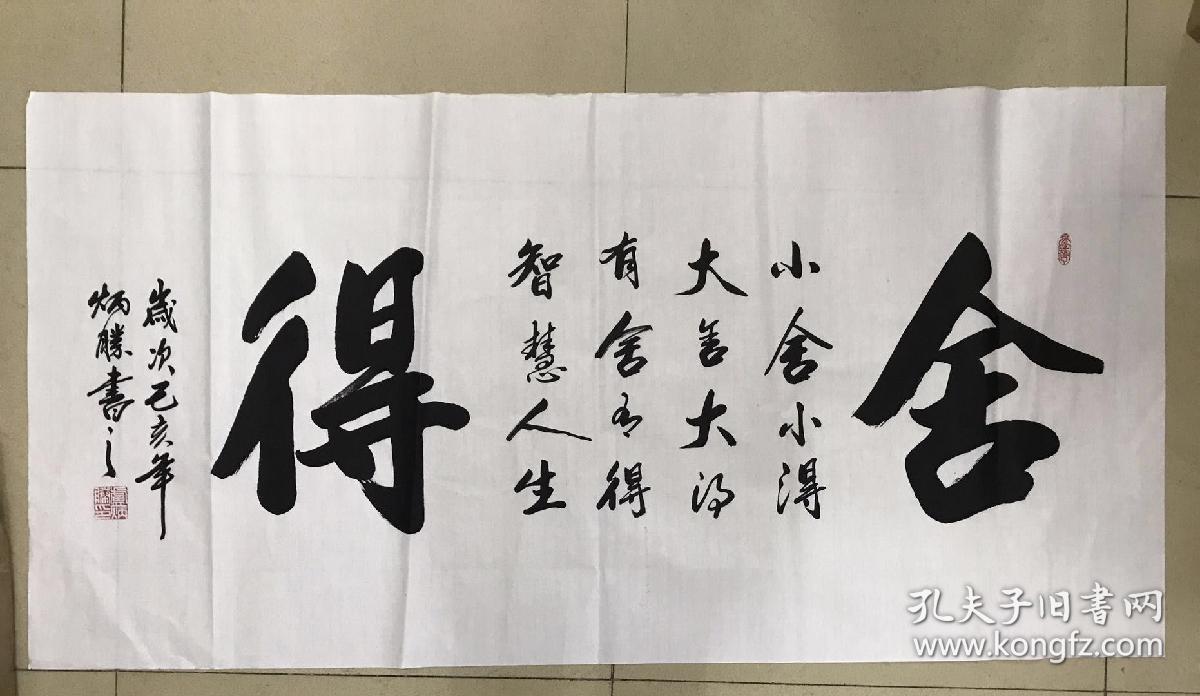 舍
小舍小得
大舍大得
有舍有得
智慧人生
得
歲次己亥年
炳勝書之
孔夫子旧書网
www.kongfz.com